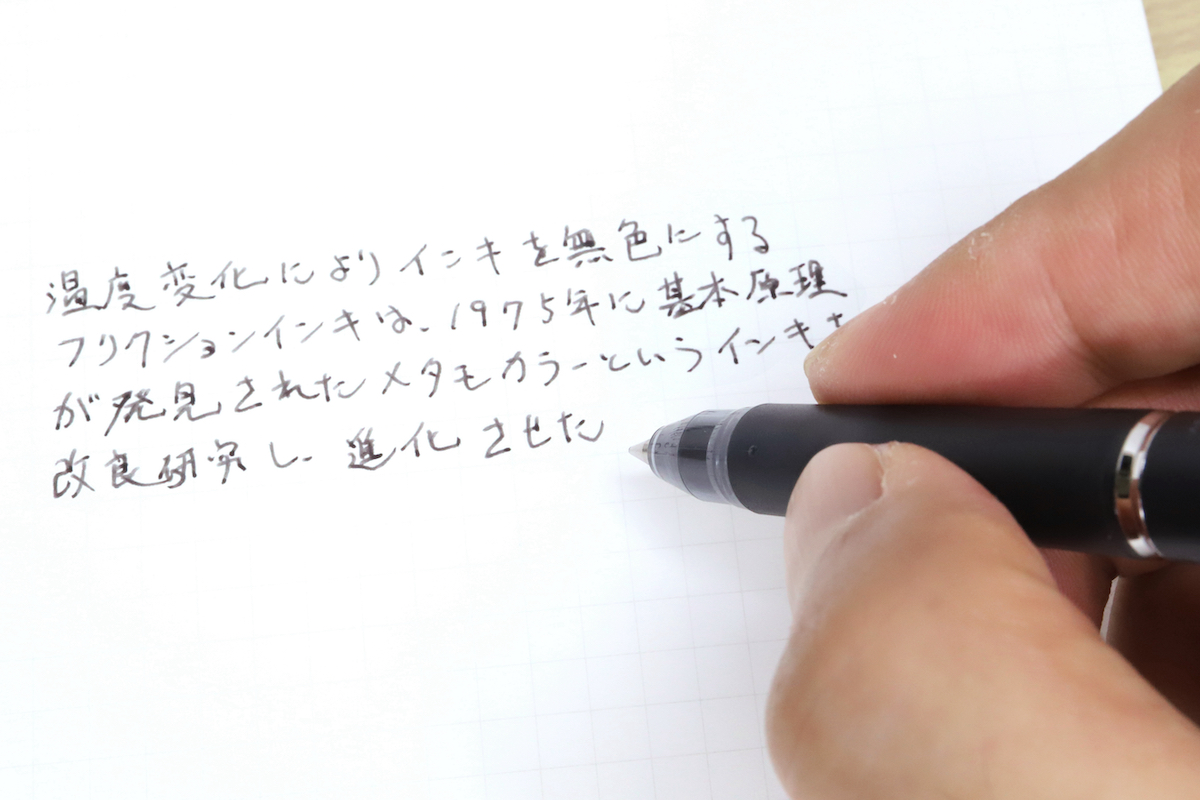 温度変化によりインキを無色にする
フリクションインキは、1975年に基本原理
が発見されたメタモカラーというインキ
改良研究し、進化させた